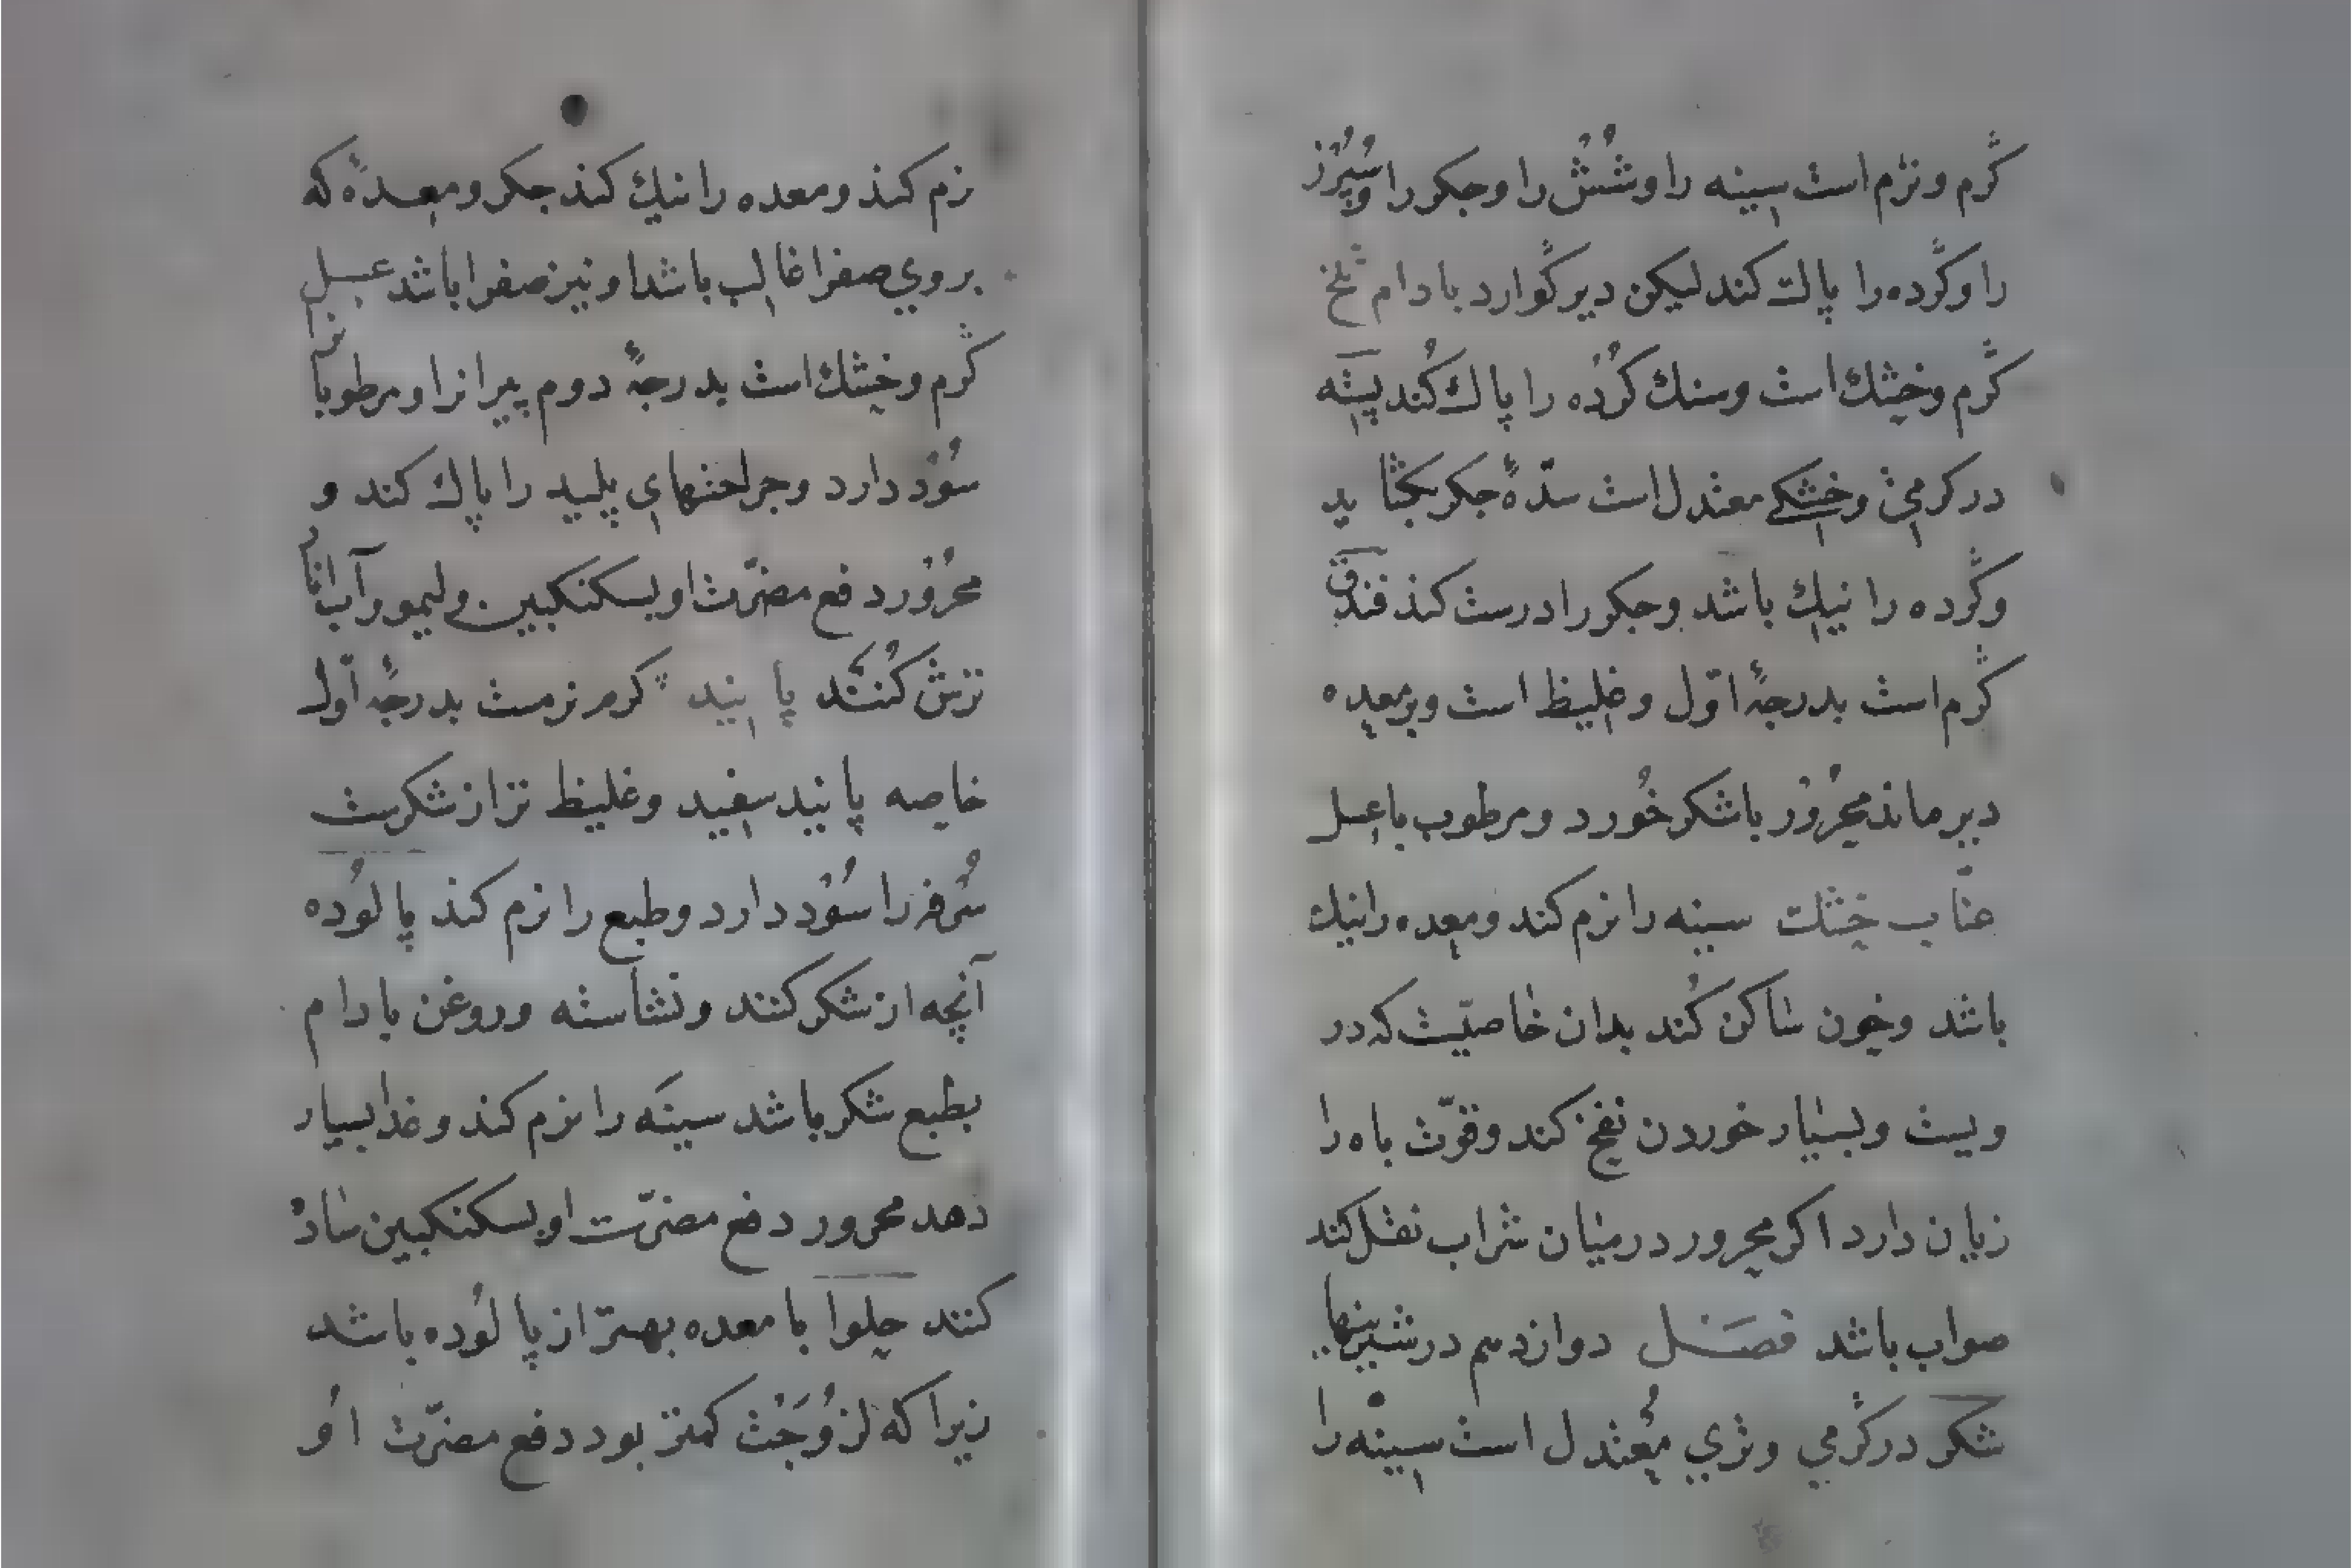 گرم و ترم است سینه را و شُش را و جکر را و سُپُرز
را و گرده را پاک کند لیکن دیر گوارد بادام تلخ
گرم و خشک است و سنك کُرده را پاك کُند پسته
در کرمی و خشکی معتدل است سدّهٔ جکر بکشاید
و گرده را نیك باشد و جکر را درست کند فندق
گرم است بدرجهٔ اوّل و غلیظ است و بر معده
دیر ماند محرُوُر باشکر خُورد و مرطوب با عسل
عنّاب خشك سینه را نرم کند و معده را نیك
باشد و خون ساکن کُند بدان خاصیّت که در
ویست و بسیار خوردن نفخ کند و قوّت باه را
زیان دارد اکر محرور در میان شراب نقل کند
صواب باشد فصل دوازدهم در شیرینیها
شکر در گرمی و تری مُعتدل است سینه را
نرم کند و معده را نیك کند جکر و معدهٔ که
بروی صفرا غالب باشد او نیز صفرا باشد عسل
گرم و خشك است بدرجهٔ دوم پیرانرا و مرطوبانرا
سُوُد دارد و جراحتهای پلید را پاك کند و
محرُوُر دفع مضرّت او بسکنکبین و لیمو و آب انار
ترش کُنَنَد پانید کرم نرمست بدرجهٔ اوّل
خاصه پانید سفید و غلیظ تر از شکرست
سُرفه را سُوُد دارد و طبع را نرم کند پالوُده
آنچه از شکر کنند و نشاسته و روغن بادام
بطبع شکر باشد سینَه را نرم کند و غذا بسیار
دهد محرور دفع مضرّت او بسکنکبین ساده
کنند حلوا با معده بهتر از پالوُده باشد
زیرا که لزُوُجَتْ کمتر بود دفع مضرّت اوُ